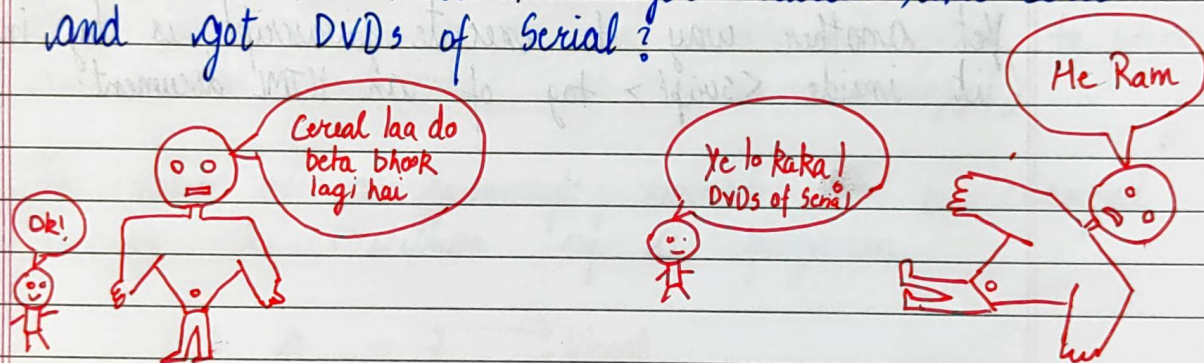 and got DVDs of Serial?
He Ram
Cereal laa do
beta bhook
lagi hai
Ye lo Kaka!
DVDs of Serial
Ok!